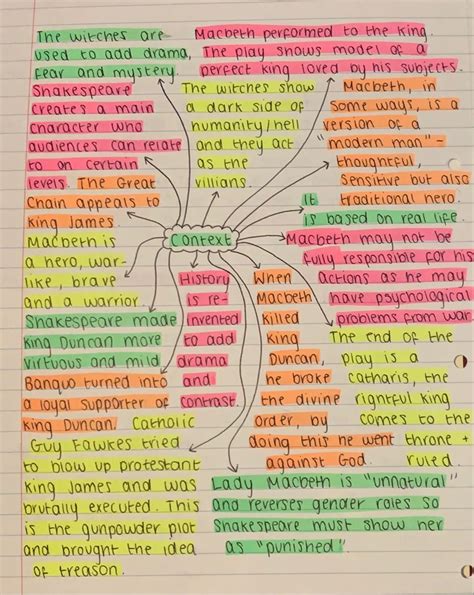 The witches are
used to add drama,
fear and mystery.
Macbeth performed to the king.
The play shows model of a
perfect king loved by his subjects.
Shakespeare
creates a main
character who
audiences can relate
to on certain
levels. The Great
Chain appeals to
King James.
The witches show
a dark side of
humanity/hell
and they act
as the
villians.
Macbeth, in
some ways, is a
version of a
"modern man" -
thoughtful,
sensitive but also
traditional hero.
It
is based on real life.
Context
Macbeth is
a hero, war-
like, brave
and a warrior.
Macbeth may not be
fully responsible for his
actions as he may
have psychological
problems from war.
Shakespeare made
King Duncan more
virtuous and mild
Banquo turned into
a loyal supporter of
King Duncan.
History
is re-
invented
to add
drama
and
contrast.
When
Macbeth
killed
King
Duncan,
he broke
the divine
order, by
doing this he went
against God.
The end of the
play is a
catharis, the
rightful king
comes to the
throne +
ruled.
Catholic
Guy Fawkes tried
to blow up protestant
King James and was
brutally executed. This
is the gunpowder plot
and brought the idea
of treason.
Lady Macbeth is "unnatural"
and reverses gender roles so
Shakespeare must show her
as "punished".